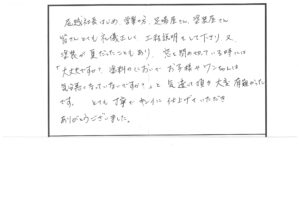 社長はじめ、営業の方、足場屋さん、塗装屋さん
皆さんとても礼儀正しく 工程説明もして下さり、又
塗装が夏だったこともあり、窓を閉め切っている時には
「大丈夫ですか？ 塗料のにおいで お子様やワンちゃんは
気分悪くなっていないですか？」と 気遣って頂き 大変 有難かった
です。 とても 丁寧で キレイに 仕上げていただき
ありがとうございました。